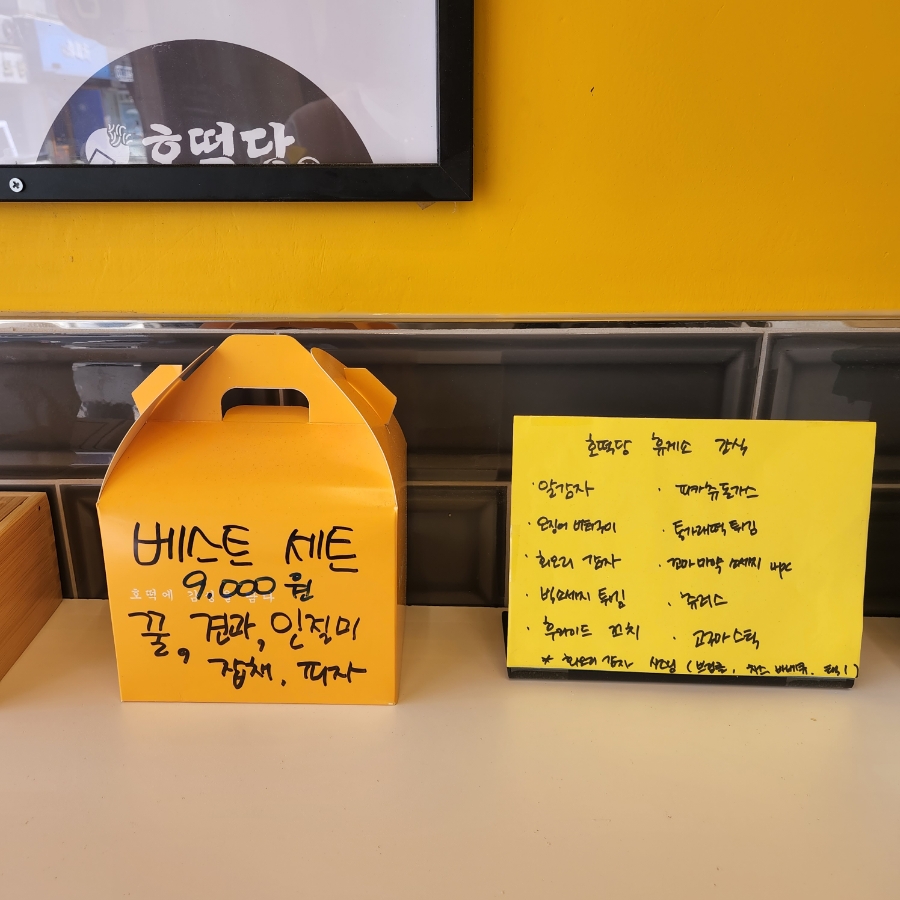 호떡당
베스트 세트
9,000원
호떡에
꿀, 견과, 인절미
잡채, 피자
호떡당 휴게소 간식
· 알감자
· 오징어 버터구이
· 회오리 감자
· 빅소세지 튀김
· 후라이드 꼬치
· 피카츄돈가스
· 통가래떡 튀김
· 꼬마 마약 소세지
· 츄러스
· 고구마스틱
* 회오리 감자 시즈닝 택1)